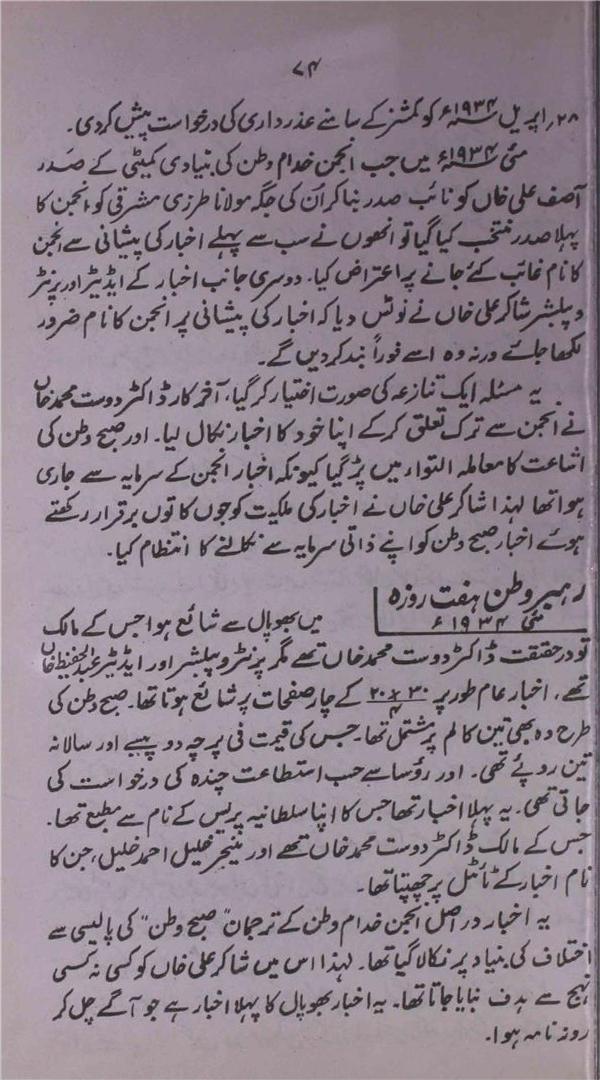 ۷۴
۲۸؍ اپریل ۱۹۳۴ء کو کمشنر کے سامنے عذرداری کی درخواست پیش کر دی۔
مئی ۱۹۳۴ء میں جب انجمن خدام وطن کی بنیادی کمیٹی کے صدر
آصف علی خاں کو نائب صدر بنا کر ان کی جگہ مولانا طرزی مشرقی کو انجمن کا
پہلا صدر منتخب کیا گیا تو انھوں نے سب سے پہلے اخبار کی پیشانی سے انجن
کا نام غائب کئے جانے پر اعتراض کیا۔ دوسری جانب اخبار کے ایڈیٹر اور پرنٹر
و پبلشر شاکر علی خاں نے نوٹس دیا کہ اخبار کی پیشانی پر انجمن کا نام ضرور
لکھا جائے ورنہ وہ اسے فوراً بند کر دیں گے۔
یہ مسئلہ ایک تنازعہ کی صورت اختیار کر گیا، آخر کار ڈاکٹر دوست محمد خاں
نے انجمن سے ترک تعلق کر کے اپنا خود کا اخبار نکال لیا۔ اور صبح وطن کی
اشاعت کا معاملہ التواء میں پڑ گیا کیونکہ اخبار انجمن کے سرمایہ سے جاری
ہوا تھا لہذا شاکر علی خاں نے اخبار کی ملکیت کو جوں کا توں برقرار رکھتے
ہوئے اخبار صبح وطن کو اپنے ذاتی سرمایہ سے نکالنے کا انتظام کیا۔
رہبر وطن ہفت روزہ
مئی ۱۹۳۴ء
میں بھوپال سے شائع ہوا جس کے مالک
تو درحقیقت ڈاکٹر دوست محمد خاں تھے مگر پرنٹر و پبلشر اور ایڈیٹر عبدالحفیظ خاں
تھے۔ اخبار عام طور پر ۲۰×۳۰/۴ کے چار صفحات پر شائع ہوتا تھا۔ صبح وطن کی
طرح وہ بھی تین کالم پر مشتمل تھا۔ جس کی قیمت فی پرچہ دو پیسے اور سالانہ
تین روپئے تھی۔ اور رؤسا سے حسب استطاعت چندہ کی درخواست کی
جاتی تھی۔ یہ پہلا اخبار تھا جس کا اپنا سلطانیہ پریس کے نام سے مطبع تھا۔
جس کے مالک ڈاکٹر دوست محمد خاں تھے اور منیجر خلیل احمد خلیل، جن کا
نام اخبار کے ٹائٹل پر چھپتا تھا۔
یہ اخبار در اصل انجمن خدام وطن کے ترجمان "صبح وطن" کی پالیسی سے
اختلاف کی بنیاد پر نکالا گیا تھا۔ لہذا اس میں شاکر علی خاں کو کسی نہ کسی
نہج سے ہدف بنایا جاتا تھا۔ یہ اخبار بھوپال کا پہلا اخبار ہے جو آگے چل کر
روزنامہ ہوا۔